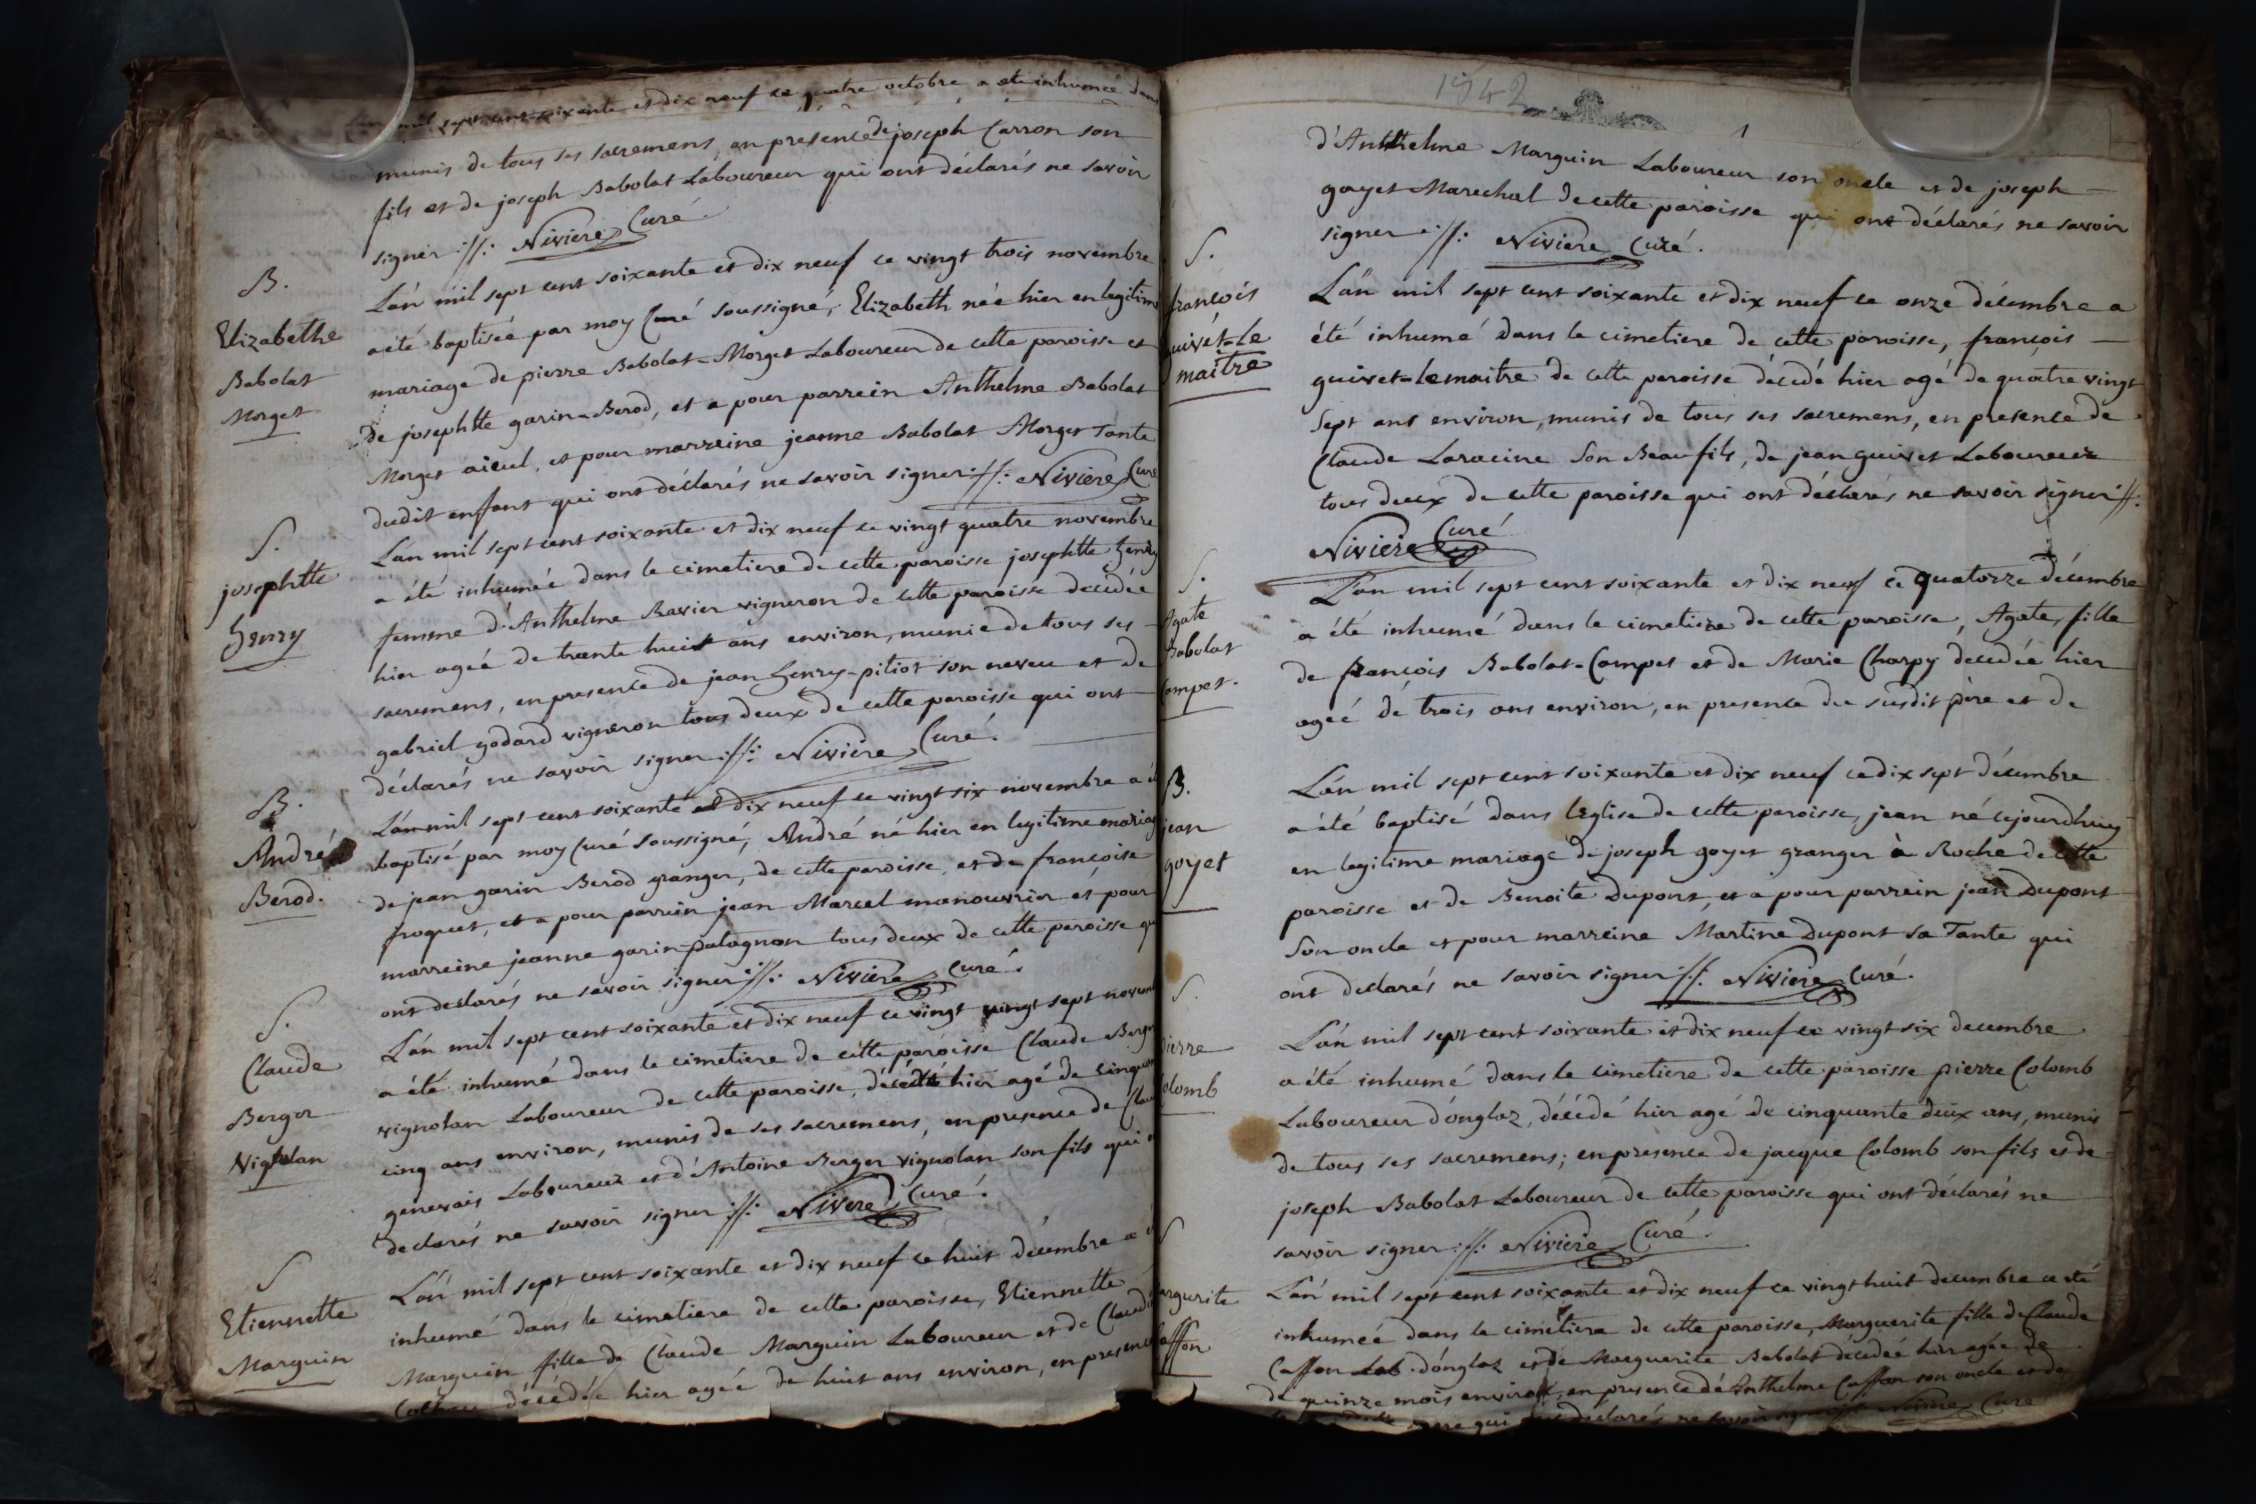 mil sept cent soixante et dix neuf ce quatre octobre a ete inhumée dans
munis de tous ses sacremens, en présence de joseph Carron son
fils et de joseph Babolat Laboureur qui ont déclarés ne savoir
signer :/: Niviere Curé.
B.
Elizabethe
Babolat
Morget
L'an mil sept cent soixante et dix neuf ce vingt trois novembre
a été baptisée par moy Curé soussigné, Elizabeth née hier en legitime
mariage de pierre Babolat-Morget Laboureur de cette paroisse et
de josephtte garin-Berod, et a pour parrein Anthelme Babolat
Morget aieul, et pour marreine jeanne Babolat Morget Tante
dudit enfant qui ont déclarés ne savoir signer :/: Niviere Curé
S.
josephtte
henry
L'an mil sept cent soixante et dix neuf ce vingt quatre novembre
a été inhumée dans le cimetiere de cette paroisse josephtte henry
femme d'Anthelme Ravier vigneron de cette paroisse decedée
hier ageé de trante huit ans environ, munie de tous ses
sacremens, en presence de jean henry-pitiot son neveu et de
gabriel godard vigneron tous deux de cette paroisse qui ont
déclarés ne savoir signer :/: Niviere Curé.
B.
André
Berod.
L'an mil sept cent soixante et dix neuf ce vingt six novembre a é
baptisé par moy Curé soussigné, André né hier en legitime mariag
de jean garin Berod granger, de cette paroisse, et de françoise
froquet, et a pour parrein jean Marcel manouvrier et pour
marreine jeanne garin-patagnon tous deux de cette paroisse qu
ont declarés ne savoir signer :/: Niviere Curé.
S.
Claude
Berger
Vignolan
L'an mil sept cent soixante et dix neuf ce vingt vingt sept novem
a été inhumé dans le cimetiere de cette paroisse Claude Berg
vignolan Laboureur de cette paroisse, décédé hier agé de cinquan
cinq ans environ, munis de ses sacremens, en presence de Clau
genevais Laboureur et d'Antoine Berger vignolan son fils qui
declarés ne savoir signer :/: Niviere Curé.
S
Etiennette
Marguin
L'an mil sept cent soixante et dix neuf ce huit décembre a
inhumé dans le cimetiere de cette paroisse, Etiennette
Marguin fille de Claude Marguin Laboureur et de Claudi
décédée hier ageé de huit ans environ, en presence
1942
1
d'Anthelme Marguin Laboureur son oncle et de joseph
goyet Marechal de cette paroisse qui ont déclarés ne savoir
signer :/: Niviere Curé.
S.
françois
guivet-le
maitre
L'an mil sept cent soixante et dix neuf ce onze décembre a
été inhumé dans le cimetiere de cette paroisse, françois
guivet-lemaitre de cette paroisse décédé hier agé de quatre vingt
Sept ans environ, munis de tous ses sacremens, en presence de
Claude Laracine Son Beaufils, de jean guivet Laboureur
tous deux de cette paroisse qui ont déclarés ne savoir signer :/:
Niviere Curé
S.
Agate
Babolat
Compet.
L'an mil sept cent soixante et dix neuf ce quatorze décembre
a été inhumé dans le cimetiere de cette paroisse, Agate, fille
de françois Babolat-Compet et de Marie Charpy décédée hier
ageé de trois ans environ, en presence du susdit père et de
B.
jean
goyet
L'an mil sept cent soixante et dix neuf ce dix sept décembre
a été baptisé dans l'Eglise de cette paroisse, jean né cejourdhuy
en legitime mariage de joseph goyet granger à Roche de cette
paroisse et de Benoite Dupont, et a pour parrein jean Dupont
Son oncle et pour marreine Martine Dupont sa Tante qui
ont declarés ne savoir signer :/: Niviere Curé.
S.
pierre
Colomb
L'an mil sept cent soixante et dix neuf ce vingt six decembre
a été inhumé dans le cimetiere de cette paroisse pierre Colomb
Laboureur d'onglaz, décédé hier agé de cinquante deux ans, munis
de tous ses sacremens; en presence de jacque Colomb son fils et de
joseph Babolat Laboureur de cette paroisse qui ont déclarés ne
savoir signer :/: Niviere Curé.
S
argurite
affon
L'an mil sept cent soixante et dix neuf ce vingt huit decembre a eté
inhumeé dans le cimetiere de cette paroisse, Marguerite fille de Claude
Caffon Lab. d'onglaz et de Marguerite Babolat décédée hier agée de
de quinze mois environ, en presence de Anthelme Caffon son oncle et de
qui ont declarés ne savoir signer Niviere Curé